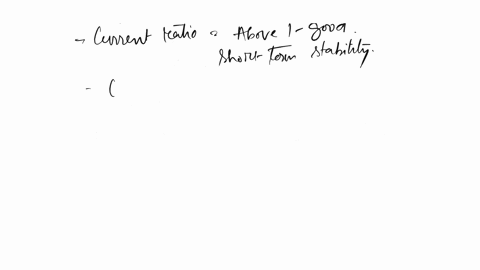 - Current ratio : Above 1 - good.
short-term stability.
- (